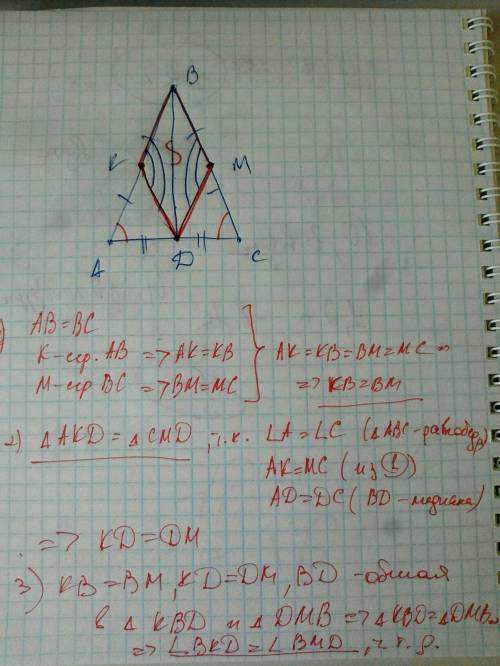 B
K S M
A D C
1) AB=BC
K-сер. AB => AK=KB
M-сер BC => BM=MC
AK=KB=BM=MC =>
=> KB=BM
2) ΔAKD = ΔCMD, т.к. ∠A=∠C (ΔABC-равнобедр)
AK=MC (из ①)
AD=DC (BD-медиана)
=> KD=DM
3) KB=BM, KD=DM, BD-общая
в ΔKBD и ΔDMB => ΔKBD=ΔDMB =>
=> ∠BKD=∠BMD, ч.т.д.